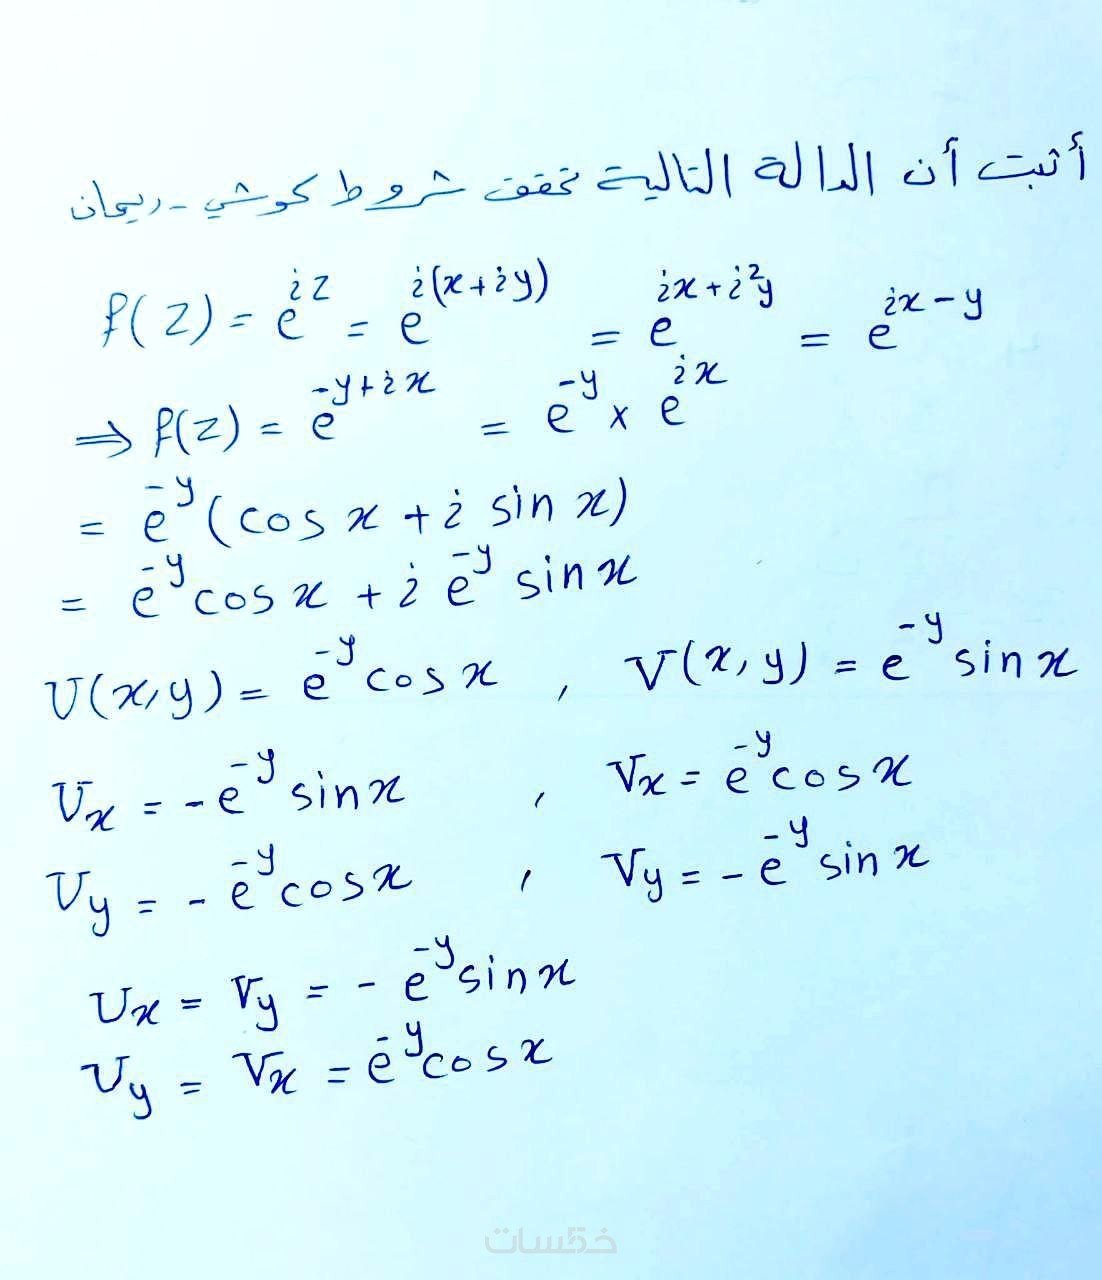 أثبت أن الدالة التالية تحقق شروط كوشي - ريمان
f(z) = e^{iz} = e^{i(x+iy)} = e^{ix+i²y} = e^{ix-y}
⇒ f(z) = e^{-y+ix} = e^{-y} × e^{ix}
= e^{-y}(cos x + i sin x)
= e^{-y} cos x + i e^{-y} sin x
U(x,y) = e^{-y} cos x , V(x,y) = e^{-y} sin x
U_x = -e^{-y} sin x , V_x = e^{-y} cos x
U_y = -e^{-y} cos x , V_y = -e^{-y} sin x
U_x = V_y = -e^{-y} sin x
U_y = V_x = e^{-y} cos x
خمسات